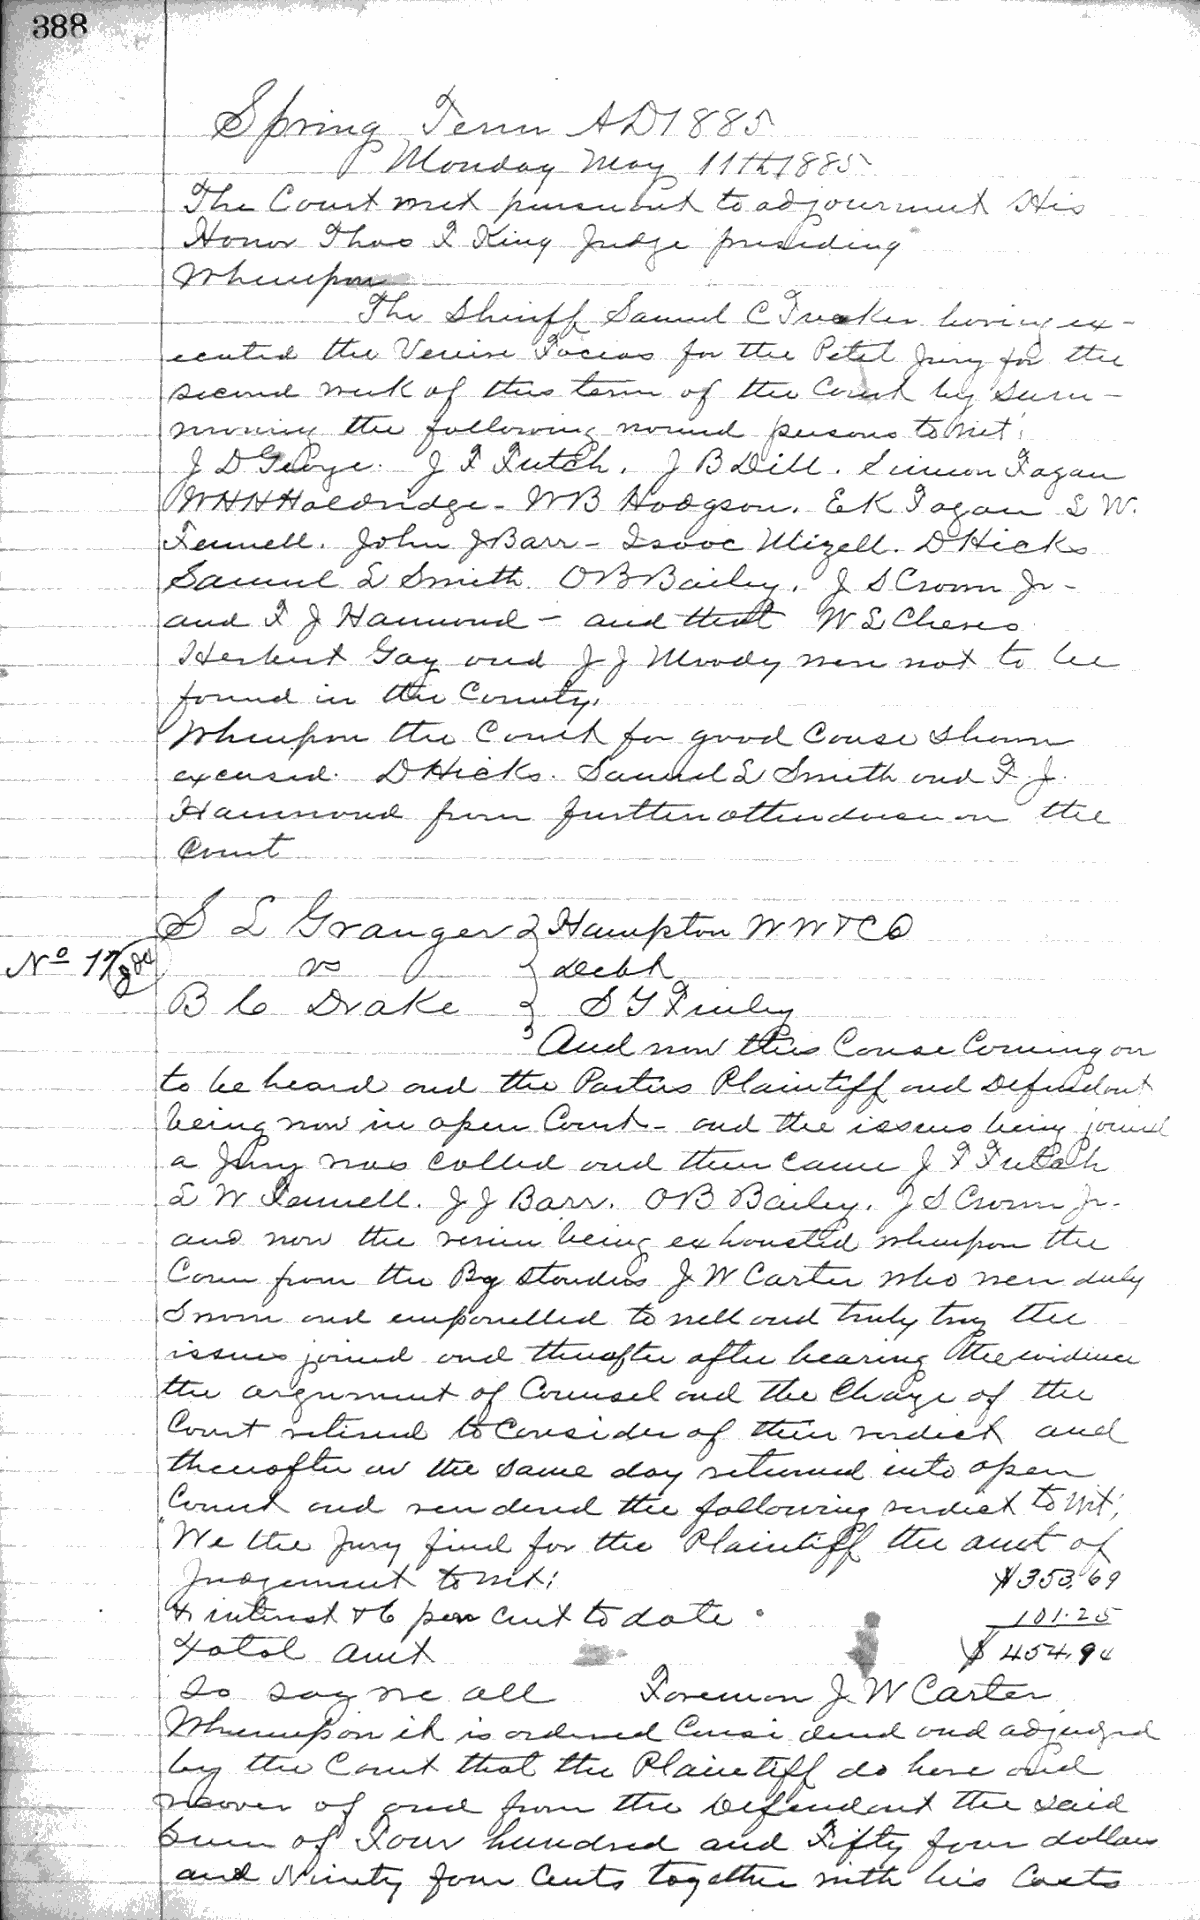 388
Spring Term AD 1885
Monday May 11th 1885
The Court met pursuant to adjournment His
Honor Thos F King Judge presiding
Whereupon
The Sheriff Samuel C Tucker having ex-
ecuted the Venire Facias for the Petit Jury for the
second week of this term of the Court by Sum-
moning the following named persons to wit;
J D George. J F Futch. J B Dill. Simeon Fagan
W H H Holdridge - W B Hodgson. E K Fagan L W.
Fennell. John J Barr - Isaac Mizell. D Hicks
Samuel L Smith. O B Bailey. J S Crown Jr -
and F J Hammond - and that W L Cheves
Herbert Gay and J J Moody were not to be
found in the County.
Whereupon the Court for good Cause shown
excused. D Hicks. Samuel L Smith and F J.
Hammond from further attendance on the
Court
S L Granger } Hampton W W & Co
No 17
vs } Debt
B C Drake } S Y Finley
And now this Cause Coming on
to be heard and the Parties Plaintiff and Defendant
being now in open Court - and the issues being joined
a Jury was called and then came J F Futch
L W Fennell. J J Barr. O B Bailey. J S Crown Jr.
and now the venire being exhausted whereupon the
Came from the By standers J W Carter who were duly
Sworn and empanelled to well and truly try the
issues joined and thereafter after hearing the evidence
the argument of Counsel and the Charge of the
Court retired to Consider of their verdict and
thereafter on the same day returned into open
Court and rendered the following verdict to wit;
"We the Jury find for the Plaintiff the amt of
Judgement to wit; $353.69
& interest & 6 per cent to date. 101.25
Total amt $454.94
So say we all Foreman J W Carter
Whereupon it is ordered Considered and adjudged
by the Court that the Plaintiff do have and
recover of and from the Defendant the said
Sum of Four hundred and Fifty four dollars
and Ninety four Cents together with his Costs